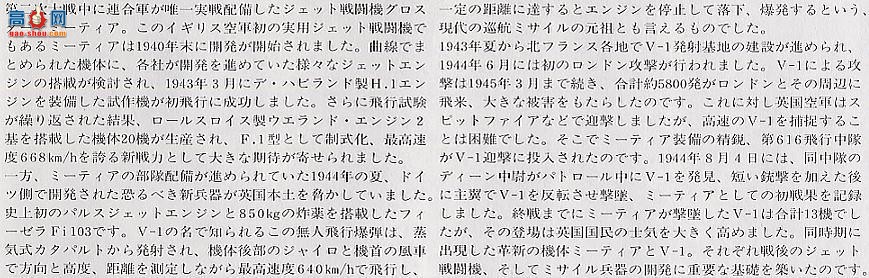 大戦中に連合軍が唯一実戦配備したジェット戦闘機グロス
ミーティア。このイギリス空軍初の実用ジェット戦闘機で
もあるミーティアは1940年末に開発が開始されました。曲線でま
とめられた機体に、各社が開発を進めていた様々なジェットエン
ジンの搭載が検討され、1943年3月にデ・ハビランド製H.1エン
ジンを装備した試作機が初飛行に成功しました。さらに飛行試験
が繰り返された結果、ロールスロイス製ウエランド・エンジン2
基を搭載した機体20機が生産され、F.1型として制式化、最高速
度668km/hを誇る新戦力として大きな期待が寄せられました。
一方、ミーティアの部隊配備が進められていた1944年の夏、ドイ
ツ側で開発された恐るべき新兵器が英国本土を脅かしていました。
史上初のパルスジェットエンジンと850kgの炸薬を搭載したフィ
ーゼラFi103です。V-1の名で知られるこの無人飛行爆弾は、蒸
気式カタパルトから発射され、機体後部のジャイロと機首の風車
で方向と高度、距離を測定しながら最高速度640km/hで飛行し、
一定の距離に達するとエンジンを停止して落下、爆発するという、
現代の巡航ミサイルの元祖とも言えるものでした。
1943年夏から北フランス各地でV-1発射基地の建設が進められ、
1944年6月には初のロンドン攻撃が行われました。V-1による攻
撃は1945年3月まで続き、合計約5800発がロンドンとその周辺に
飛来、大きな被害をもたらしたのです。これに対し英国空軍はス
ピットファイアなどで迎撃しましたが、高速のV-1を捕捉するこ
とは困難でした。そこでミーティア装備の精鋭、第616飛行中隊
がV-1迎撃に投入されたのです。1944年8月4日には、同中隊の
ディーン中尉がパトロール中にV-1を発見、短い銃撃を加えた後
に主翼でV-1を反転させ撃墜、ミーティアとしての初戦果を記録
しました。終戦までにミーティアが撃墜したV-1は合計13機でし
たが、その登場は英国国民の士気を大きく高めました。同時期に
出現した革新の機体ミーティアとV-1。それぞれ戦後のジェット
戦闘機、そしてミサイル兵器の開発に重要な基礎を築いたのです。
高手网
gao-shou.com